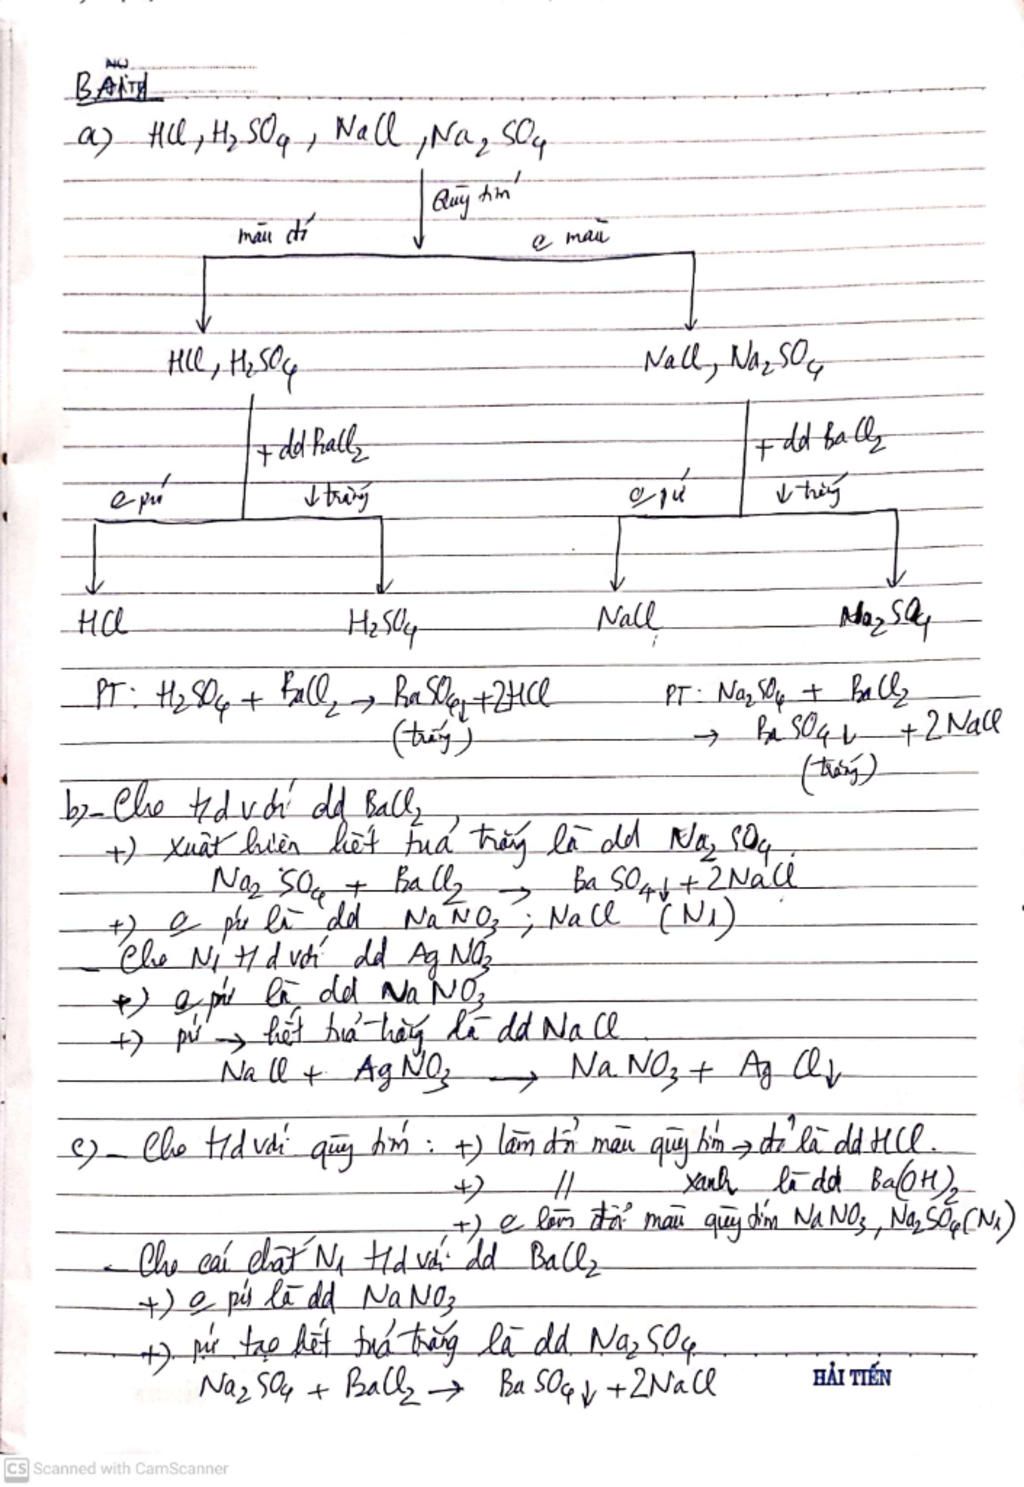 a) HCl, H₂SO₄, NaCl, Na₂SO₄
Quỳ tím
màu đỏ
o màu
HCl, H₂SO₄
NaCl, Na₂SO₄
+ dd BaCl₂
+ dd BaCl₂
o pứ
↓ trắng
o pứ
↓ trắng
HCl
H₂SO₄
NaCl
Na₂SO₄
PT: H₂SO₄ + BaCl₂ → BaSO₄↓ + 2HCl
(trắng)
PT: Na₂SO₄ + BaCl₂
→ BaSO₄↓ + 2NaCl
(trắng)
b) - Cho t/d với dd BaCl₂
+) xuất hiện kết tủa trắng là dd Na₂SO₄
Na₂SO₄ + BaCl₂ → BaSO₄↓ + 2NaCl
+) o pứ là dd NaNO₃; NaCl (N1)
- Cho N1 t/d với dd AgNO₃
+) o pứ là dd NaNO₃
+) pứ → kết tủa trắng là dd NaCl
NaCl + AgNO₃ → NaNO₃ + AgCl↓
c) - Cho t/d với quỳ tím: +) làm đổi màu quỳ tím → đỏ là dd HCl.
+) // xanh là dd Ba(OH)₂
+) o làm đổi màu quỳ tím NaNO₃, Na₂SO₄ (N1)
- Cho các chất N1 t/d với dd BaCl₂
+) o pứ là dd NaNO₃
+) pứ tạo kết tủa trắng là dd Na₂SO₄
Na₂SO₄ + BaCl₂ → BaSO₄↓ + 2NaCl
HẢI TIẾN
CS Scanned with CamScanner